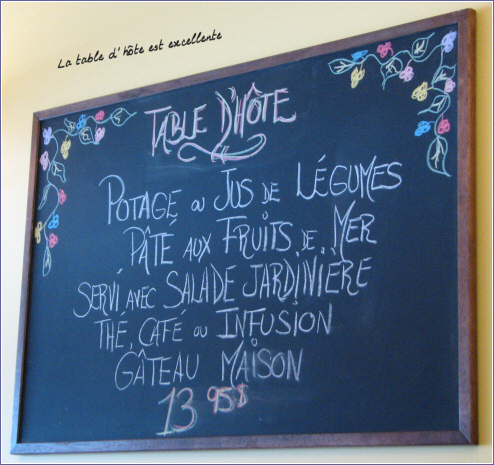 La table d'hôte est excellente
TABLE D'HÔTE
POTAGE OU JUS DE LÉGUMES
PÂTÉ AUX FRUITS DE MER
SERVI AVEC SALADE JARDINIÈRE
THÉ, CAFÉ OU INFUSION
GÂTEAU MAISON
13 95$